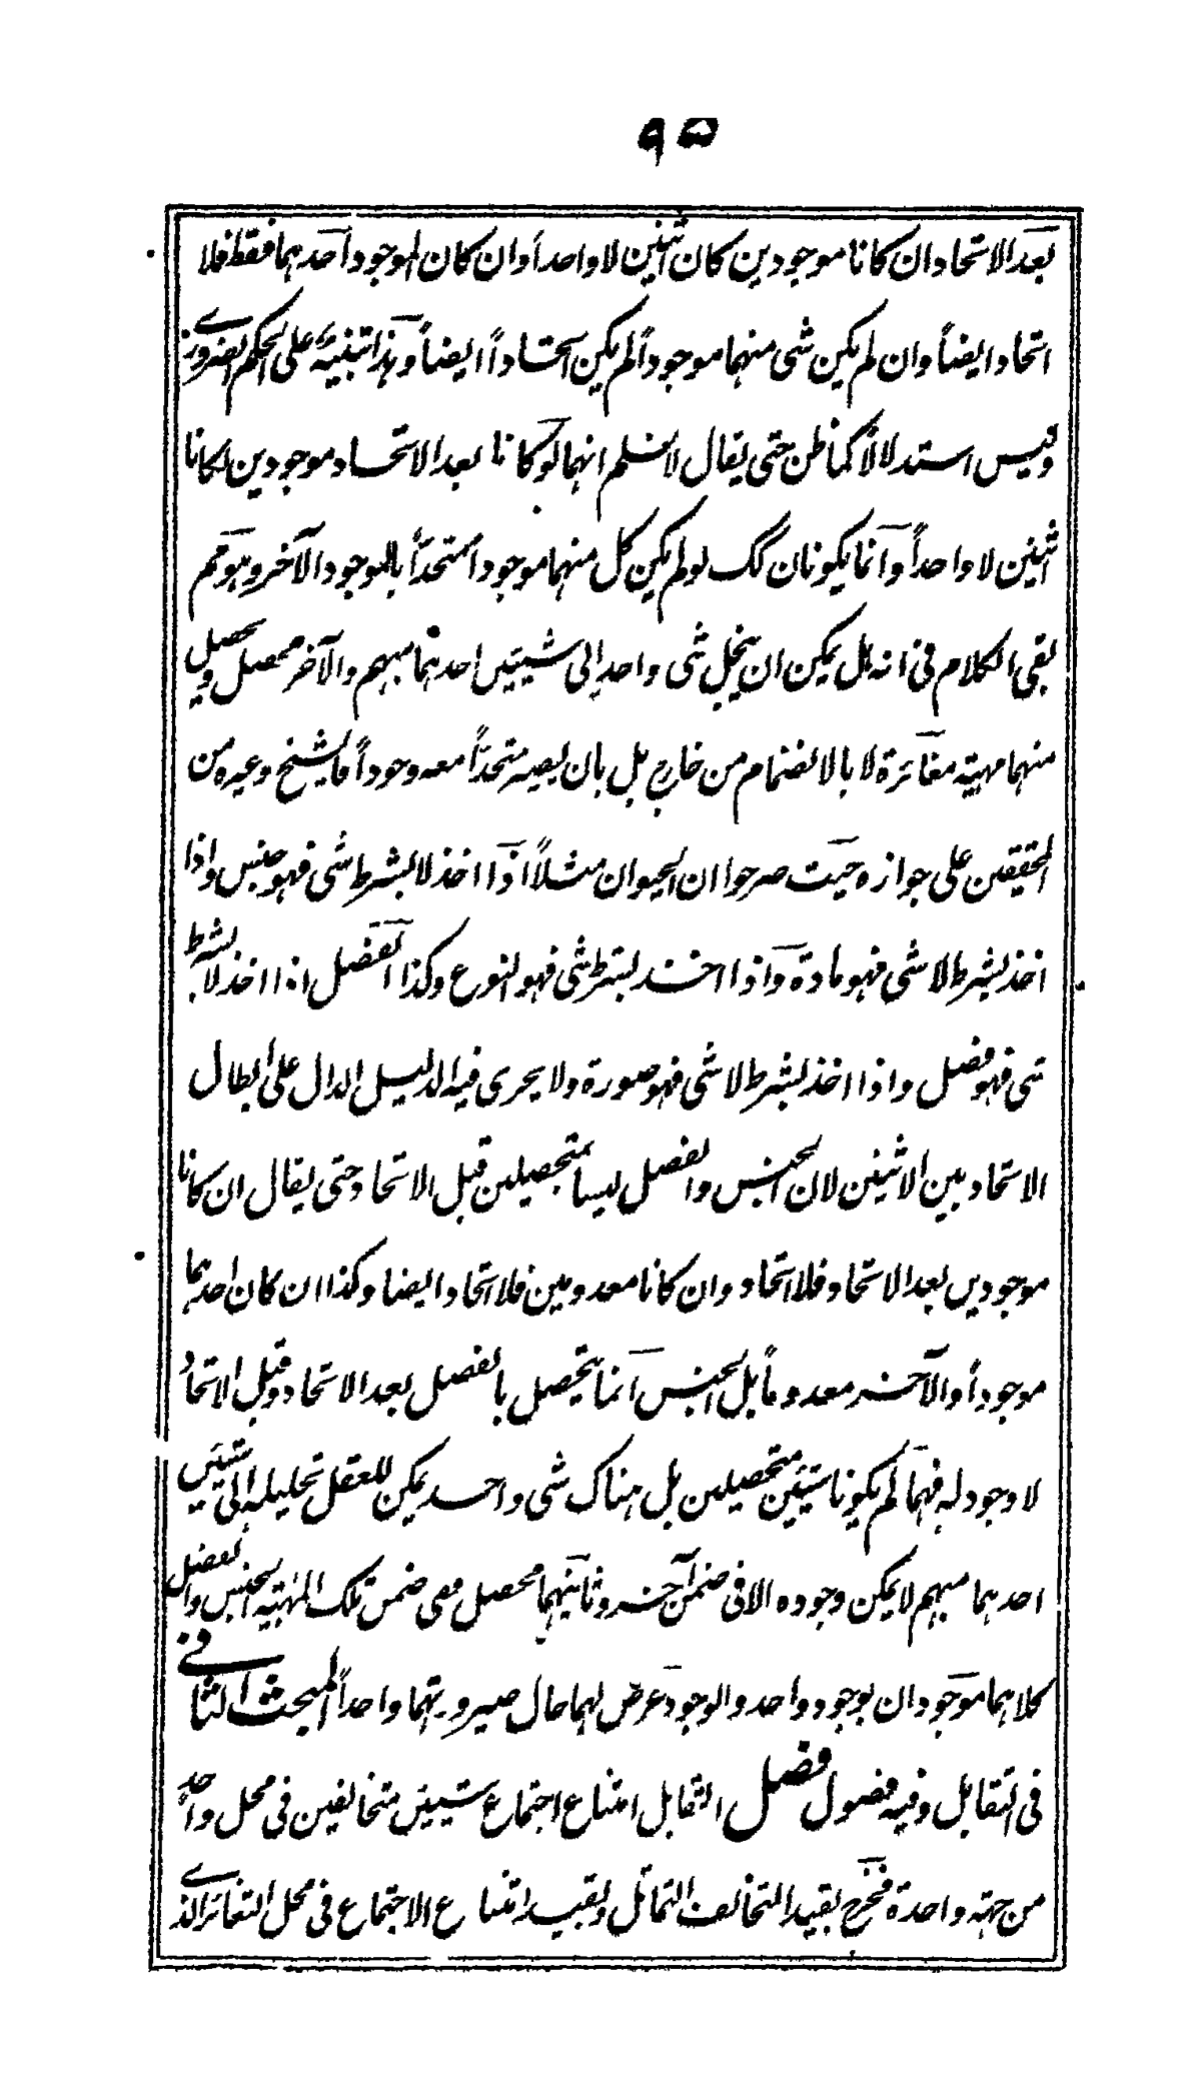 ٩٥
بعد الاتحاد ان كانا موجودين كان اثنين لا واحداً وان كان الموجود احدهما فقط فلا
اتحاد ايضاً وان لم يكن شى منهما موجوداً لم يكن اتحاداً ايضاً وهذا تنبيه على الحكم الضرورى
وليس استدلالاً كما ظن حتى يقال لا نسلم انهما لو كانا بعد الاتحاد موجودين لكانا
اثنين لا واحداً وانما يكونان كك لو لم يكن كل منهما موجوداً متحداً بالموجود الآخر وهو مم
بقى الكلام فى انه هل يمكن ان ينحل شى واحد الى شيئين احدهما مبهم والآخر محصل ويحصل
منهما مهية مغائرة لا بالانضمام من خارج بل بان يصير متحداً معه وجوداً فالشيخ وغيره من
المحققين على جوازه حيث صرحوا ان الحيوان مثلاً اذا اخذ لا بشرط شى فهو جنس واذا
اخذ بشرط لا شى فهو مادة واذا اخذ بشرط شى فهو النوع وكذا الفصل اذا اخذ لا بشرط
شى فهو فصل واذا اخذ بشرط لا شى فهو صورة ولا يجرى فيه الدليل الدال على ابطال
الاتحاد بين الاثنين لان الجنس والفصل ليسا متحصلين قبل الاتحاد حتى يقال ان كانا
موجودين بعد الاتحاد فلا اتحاد وان كانا معدومين فلا اتحاد ايضا وكذا ان كان احدهما
موجوداً والآخر معدوماً بل الجنس انما يتحصل بالفصل بعد الاتحاد وقبل الاتحاد
لا وجود له فهما لم يكونا شيئين متحصلين بل هناك شى واحد يمكن للعقل تحليله الى شيئين
احدهما مبهم لا يمكن وجوده الا فى ضمن آخر وثانيهما محصل ففى ضمن تلك المهية الجنس والفصل
كلاهما موجودان بوجود واحد والوجود عرض لهما حال صيرورتهما واحداً المبحث الثانى
فى التقابل وفيه فصول فصل التقابل امتناع اجتماع شيئين متخالفين فى محل واحد
من جهة واحدة فخرج بقيد التخالف التماثل وبقيد امتناع الاجتماع فى محل التغائر الذى